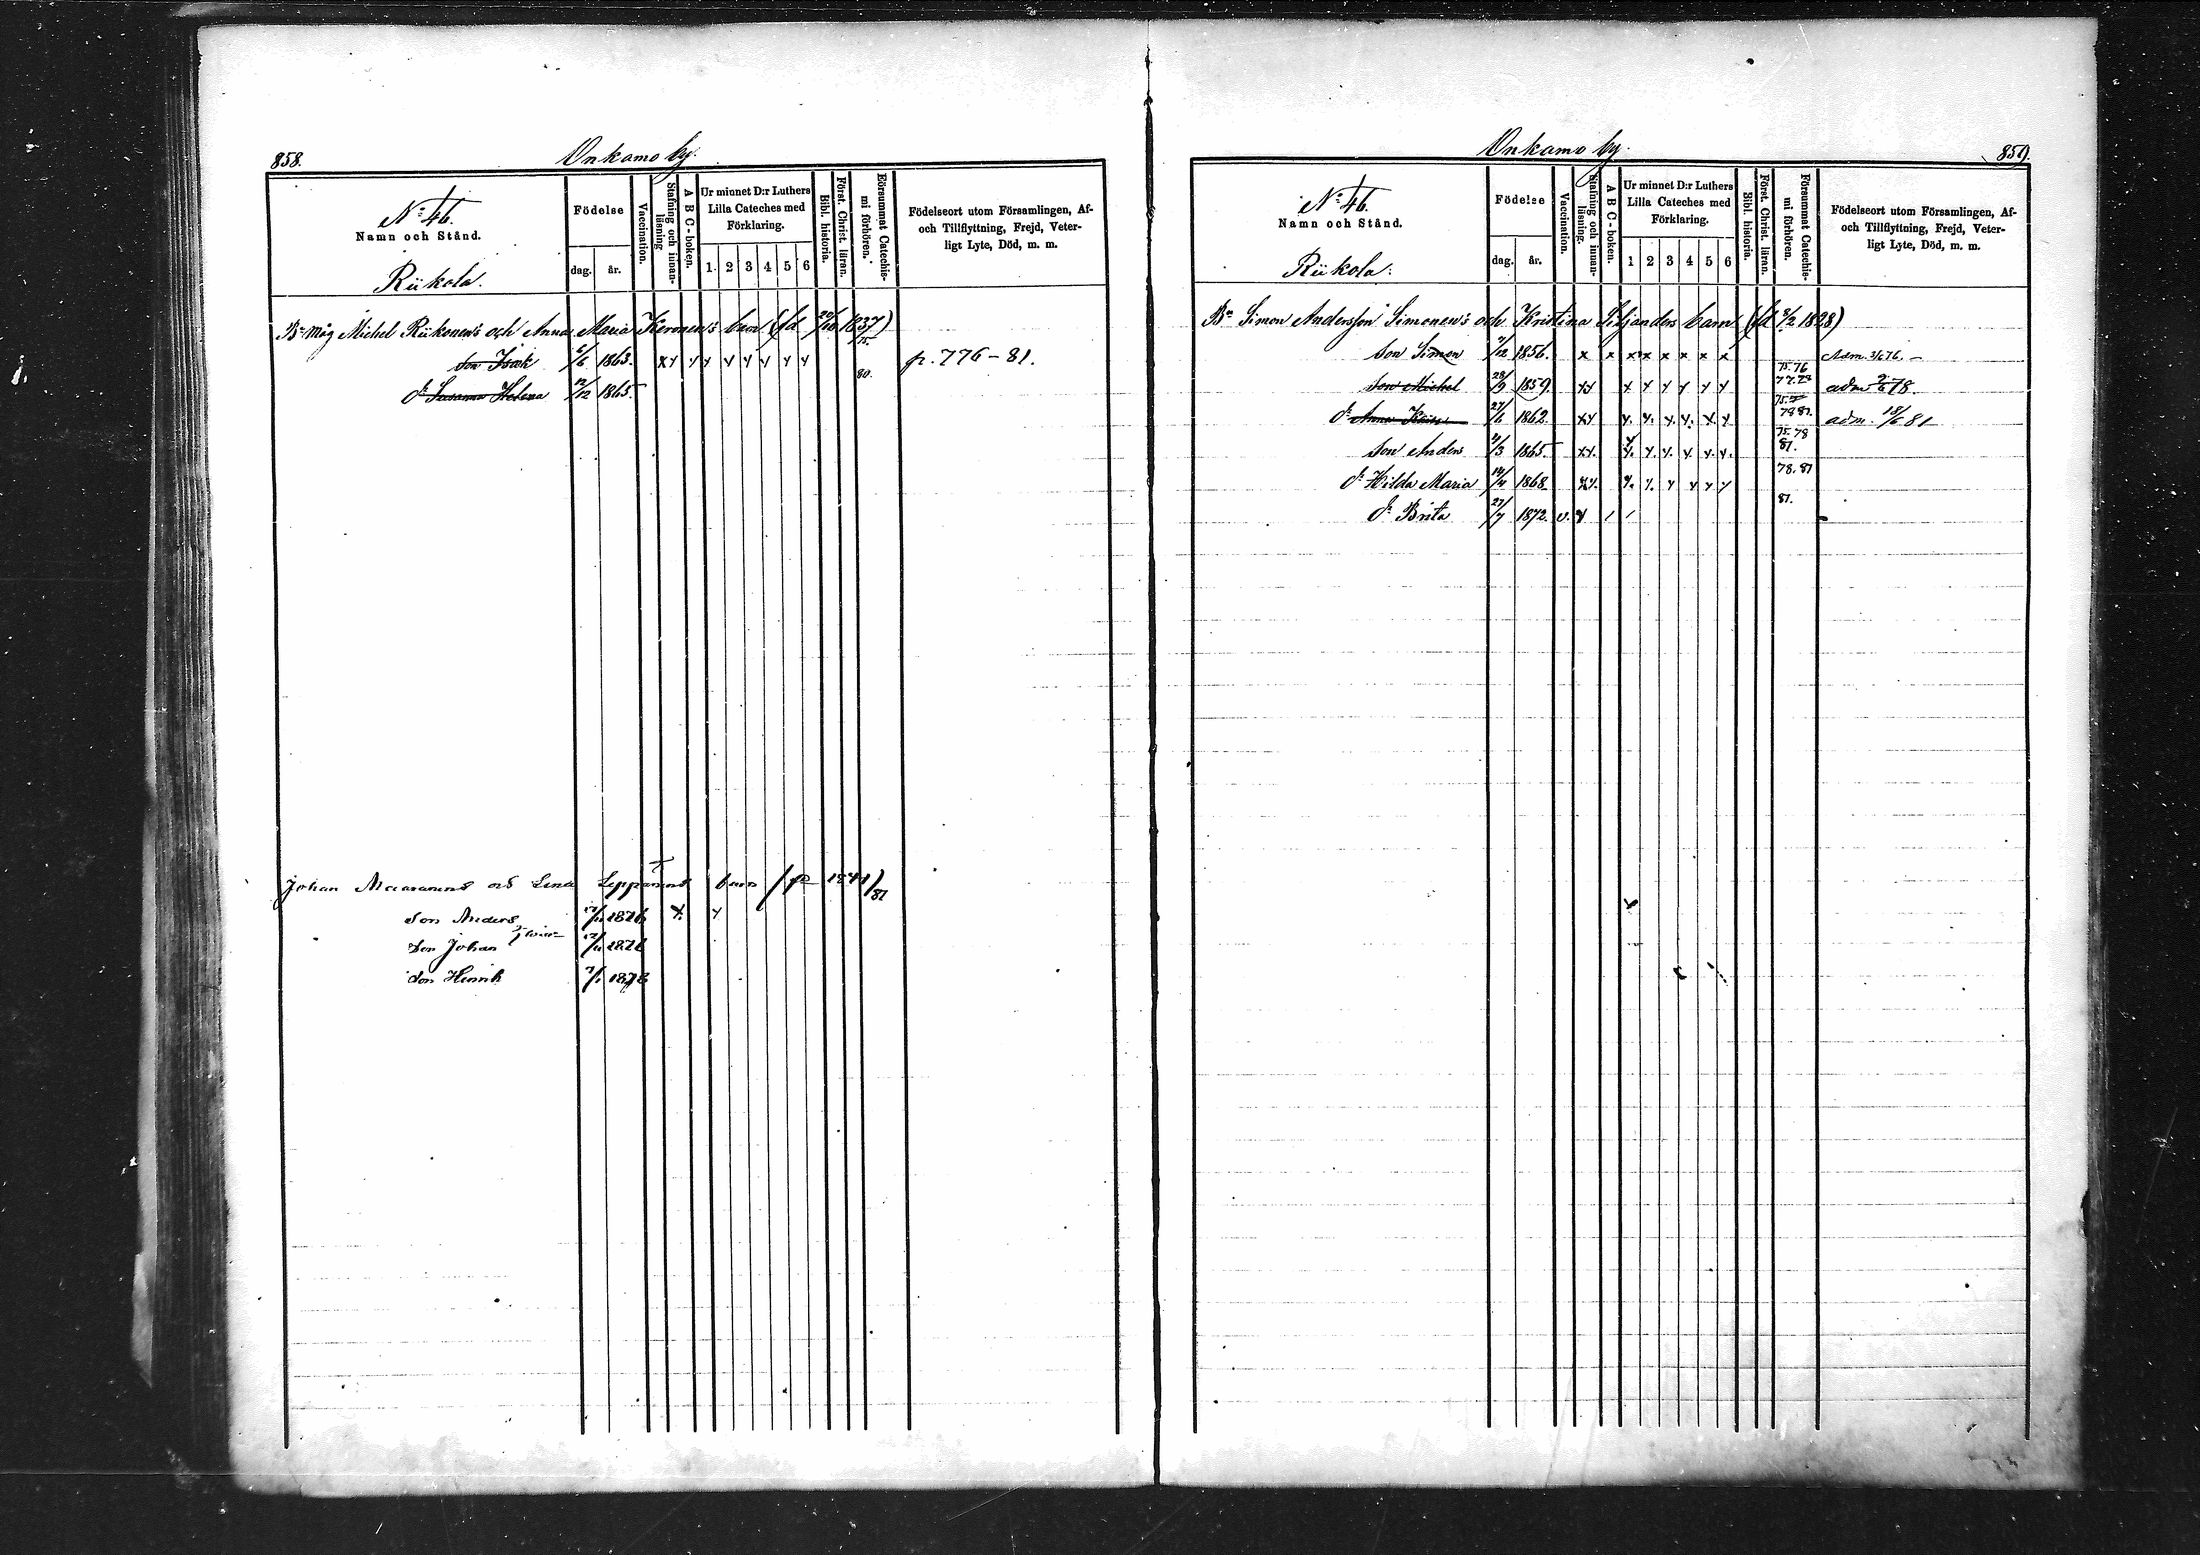 858.
Onkamo by.
No 46.
Namn och Stånd.
Riikola.
Födelse
dag.
år.
Vaccination.
Stafning och innan-
läsning
A B C-boken.
Ur minnet D:r Luthers
Lilla Cateches med
Förklaring.
1. 2 3 4 5 6
Bibl. historia.
Först. Christ. läran.
Försummat Catechis-
mi förhören.
Födelseort utom Församlingen, Af-
och Tillflyttning, Frejd, Veter-
ligt Lyte, Död, m. m.
Bn måg Michel Riikonen's och Anna Maria Keronen's barn (fd 20/10 1837)
75.
Son Isak 6/6 1863. x y y y y y y y y p. 776-81.
80.
dr Susanna Helena 12/12 1865.
Johan och Lena Leppänens barn 1841)
81
Son Anders 17/11 1876 x y
Son Johan 17/11 1876
Son Henrik 7/1 1878
Onkamo by.
859.
No 46.
Namn och Stånd.
Riikola.
Födelse
dag.
år.
Vaccination.
Stafning och innan-
läsning.
A B C-boken.
Ur minnet D:r Luthers
Lilla Cateches med
Förklaring.
1 2 3 4 5 6
Bibl. historia.
Först. Christ. läran.
Försummat Catechis-
mi förhören.
Födelseort utom Församlingen, Af-
och Tillflyttning, Frejd, Veter-
ligt Lyte, Död, m. m.
Bn Simon Andersson Simonen's och Kristina Siljanders barn (fd 3/2 1828)
Son Simon 9/12 1856. x x x x x x x x Adm. 3/6 76. -
75. 76
Son Michel 28/9 1859. x y x y y y y y 77. 78 adm 78.
75.
dr Anna 27/6 1862. x y y. y. y. y. y. y 78 81. adm. 18/6 81
75. 78
Son Anders 4/3 1865. x y. y. y. y. y. y. y. 81.
78. 81
dr Hilda Maria 14/4 1868. x y. y. y. y y y y
81.
dr Brita 27/7 1872. v. y / /